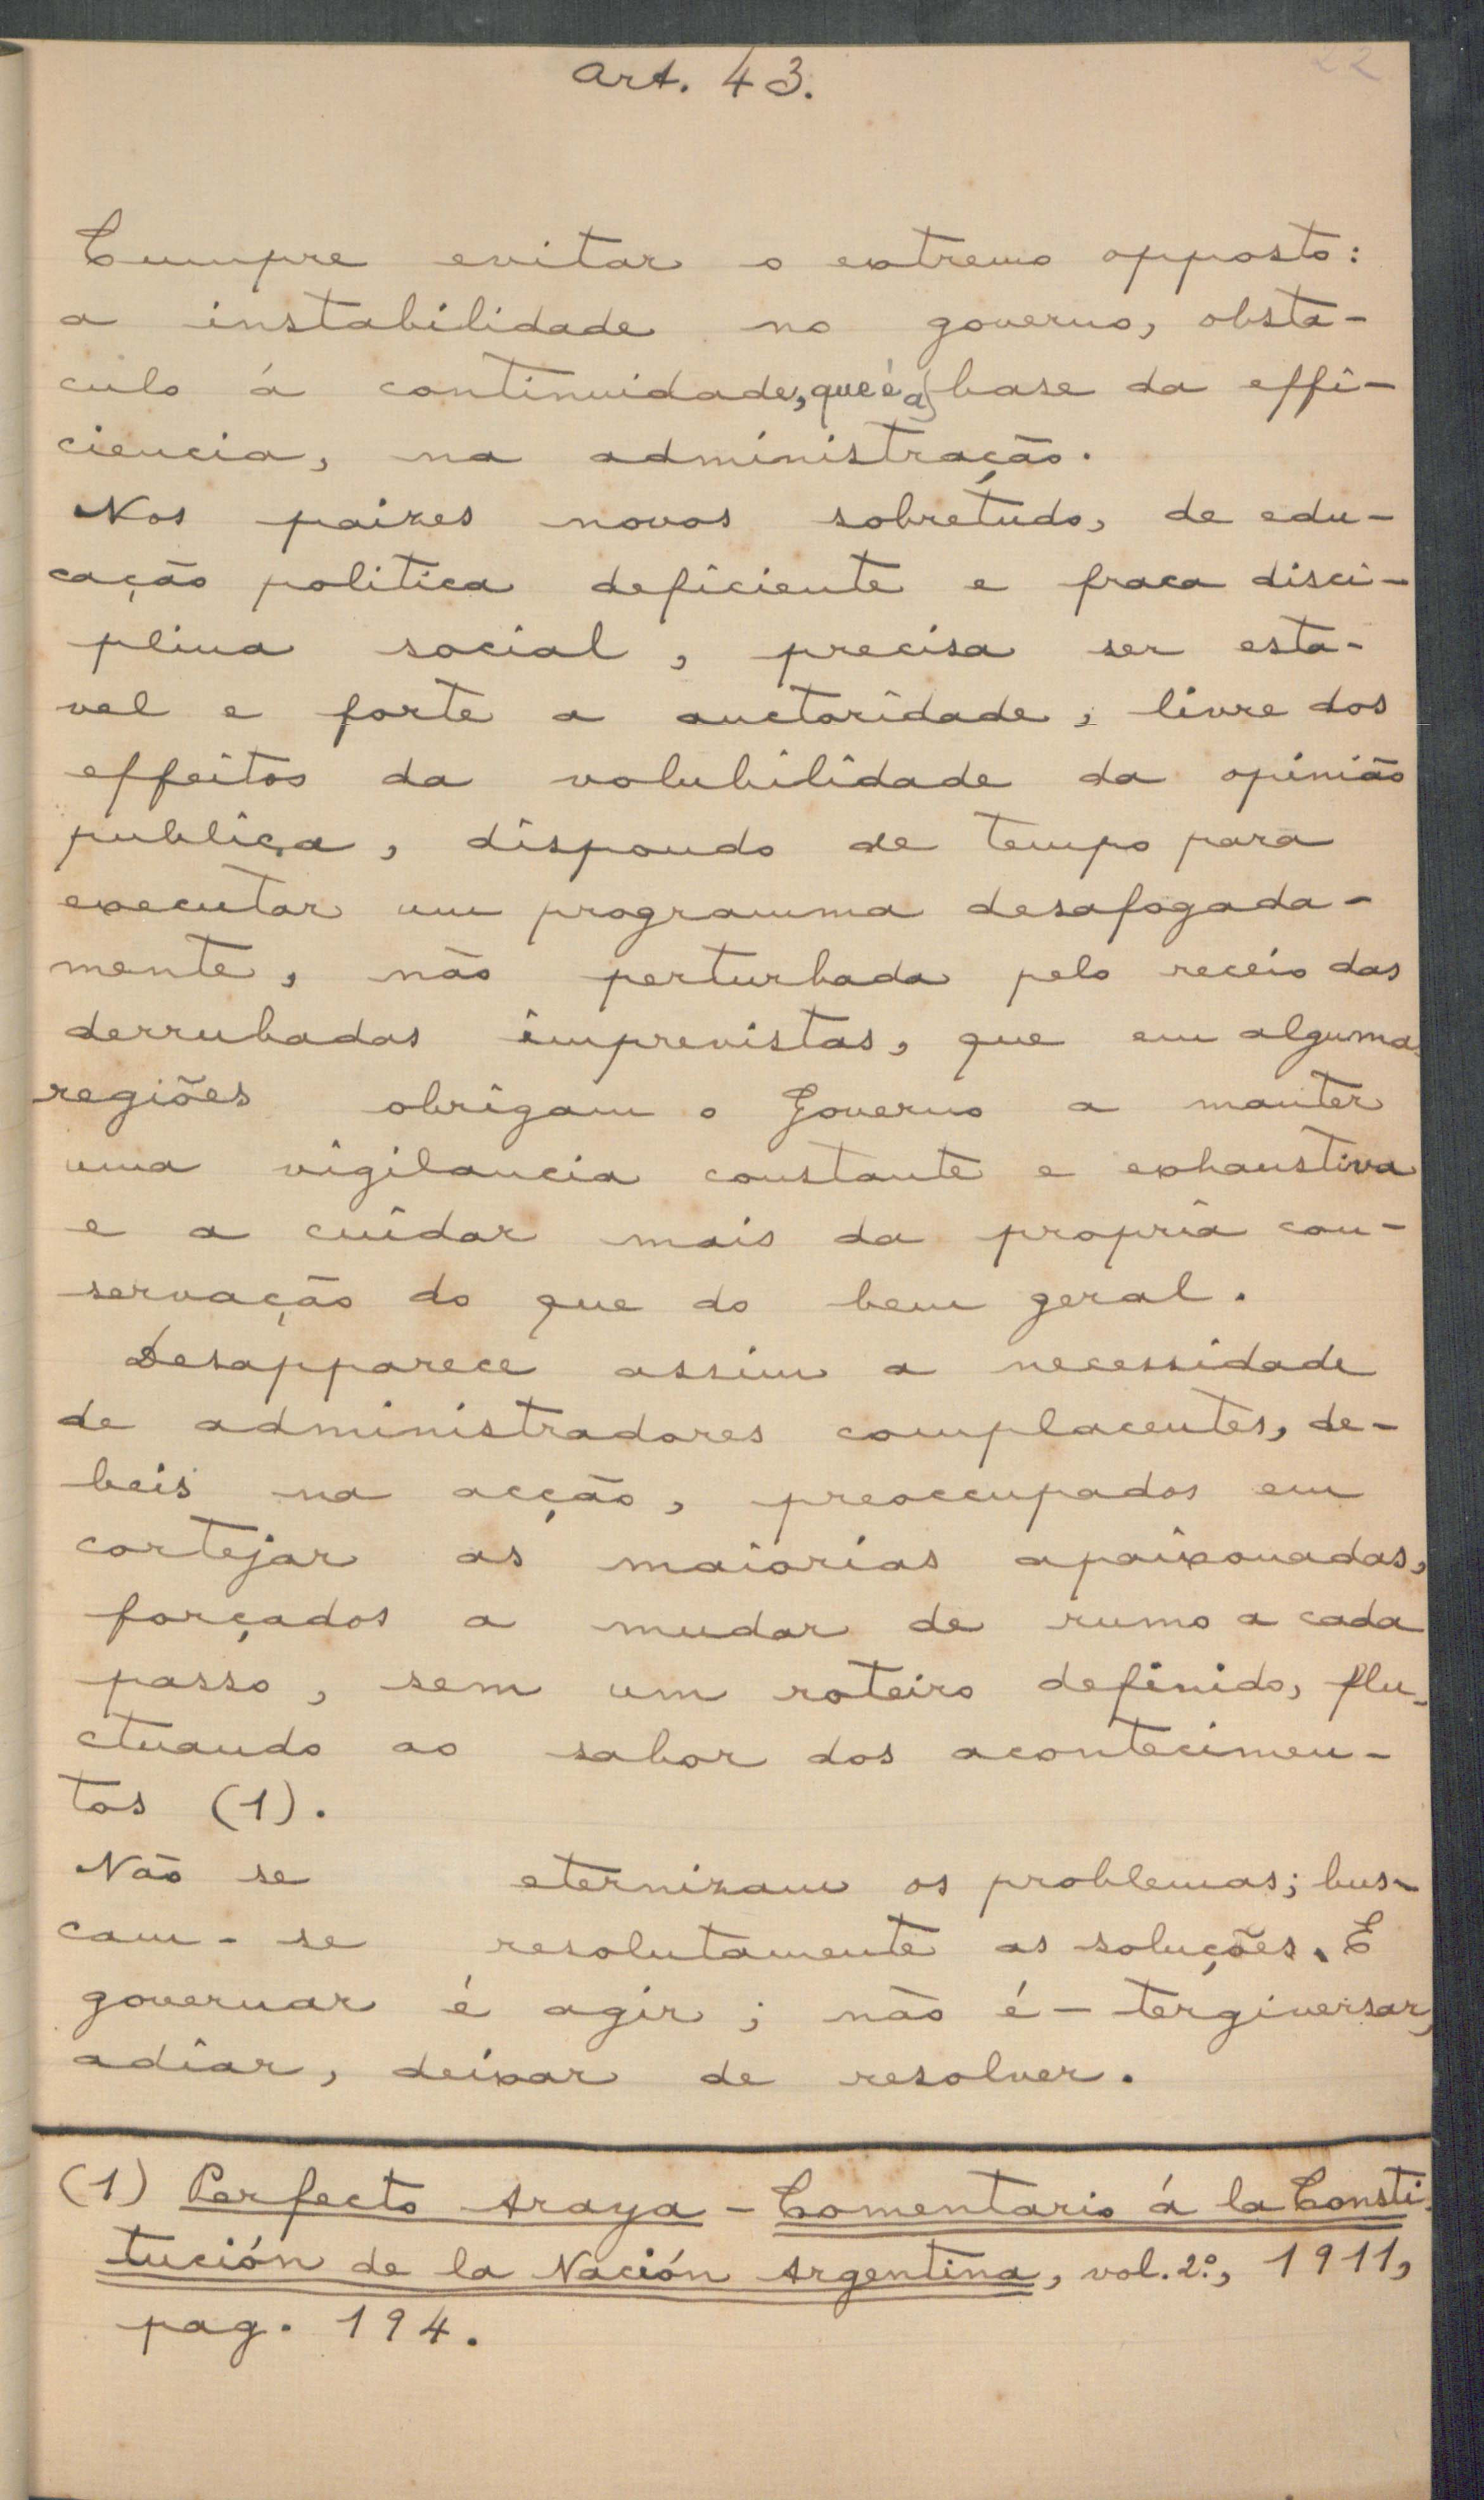 22
Art. 43.
Cumpre evitar o extremo opposto:
a instabilidade no governo, obsta-
culo á continuidade, que é a base da effi-
ciencia, na administração.
Nos paizes novos sobretudo, de edu-
cação politica deficiente e fraca disci-
plina social, precisa ser esta-
vel e forte a auctoridade, livre dos
effeitos da volubilidade da opinião
publica, dispondo de tempo para
executar um programma desafogada-
mente, não perturbada pelo receio das
derrubadas imprevistas, que em algumas
regiões obrigam o Governo a manter
uma vigilancia constante e exhaustiva
e a cuidar mais da propria con-
servação do que do bem geral.
Desapparece assim a necessidade
de administradores complacentes, de-
beis na acção, preoccupados em
cortejar as maiorias apaixonadas,
forçados a mudar de rumo a cada
passo, sem um roteiro definido, flu-
ctuando ao sabor dos acontecimen-
tos (1).
Não se eternizam os problemas; bus-
cam-se resolutamente as soluções. E
governar é agir; não é - tergiversar,
adiar, deixar de resolver.
(1) Perfecto Araya - Comentario á la Consti-
tución de la Nación Argentina, vol. 2º, 1911,
pag. 194.